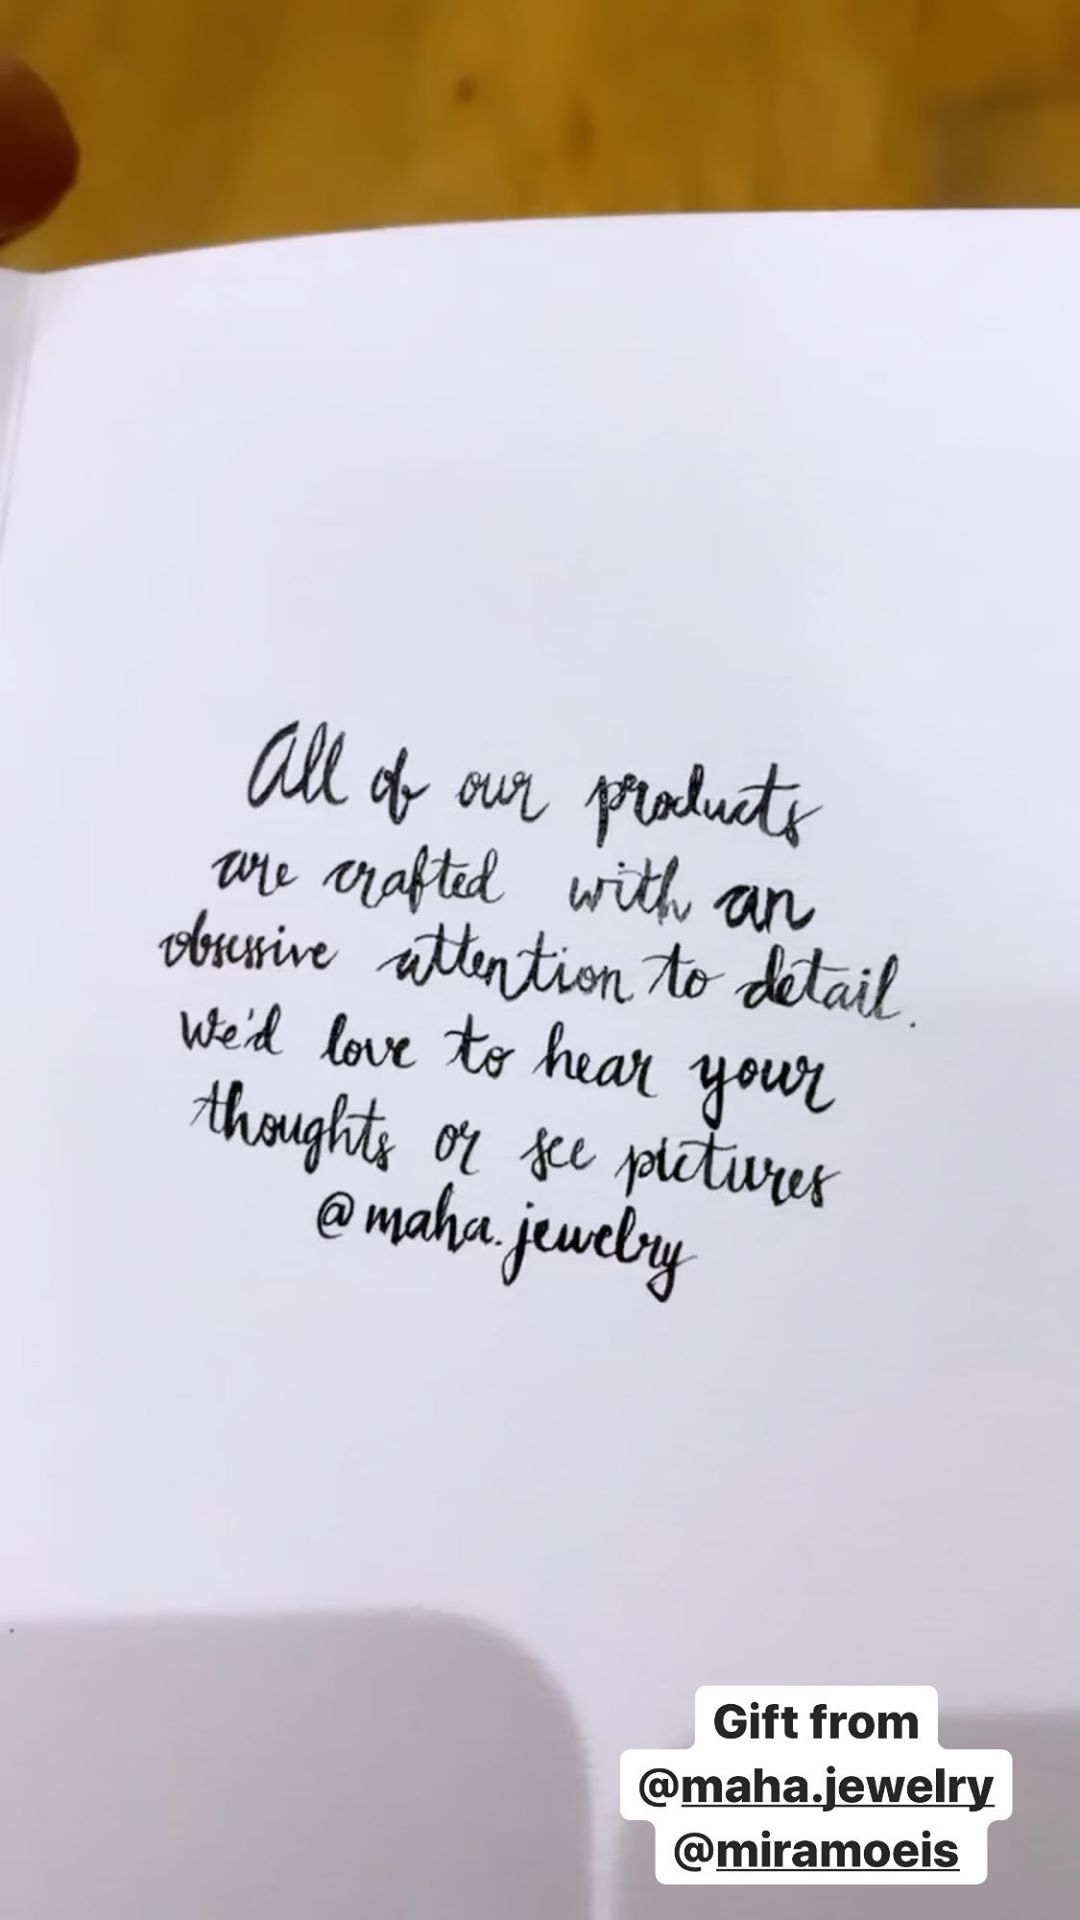 All of our products
are crafted with an
obsessive attention to detail.
We'd love to hear your
thoughts or see pictures
@maha.jewelry
Gift from
@maha.jewelry
@miramoeis